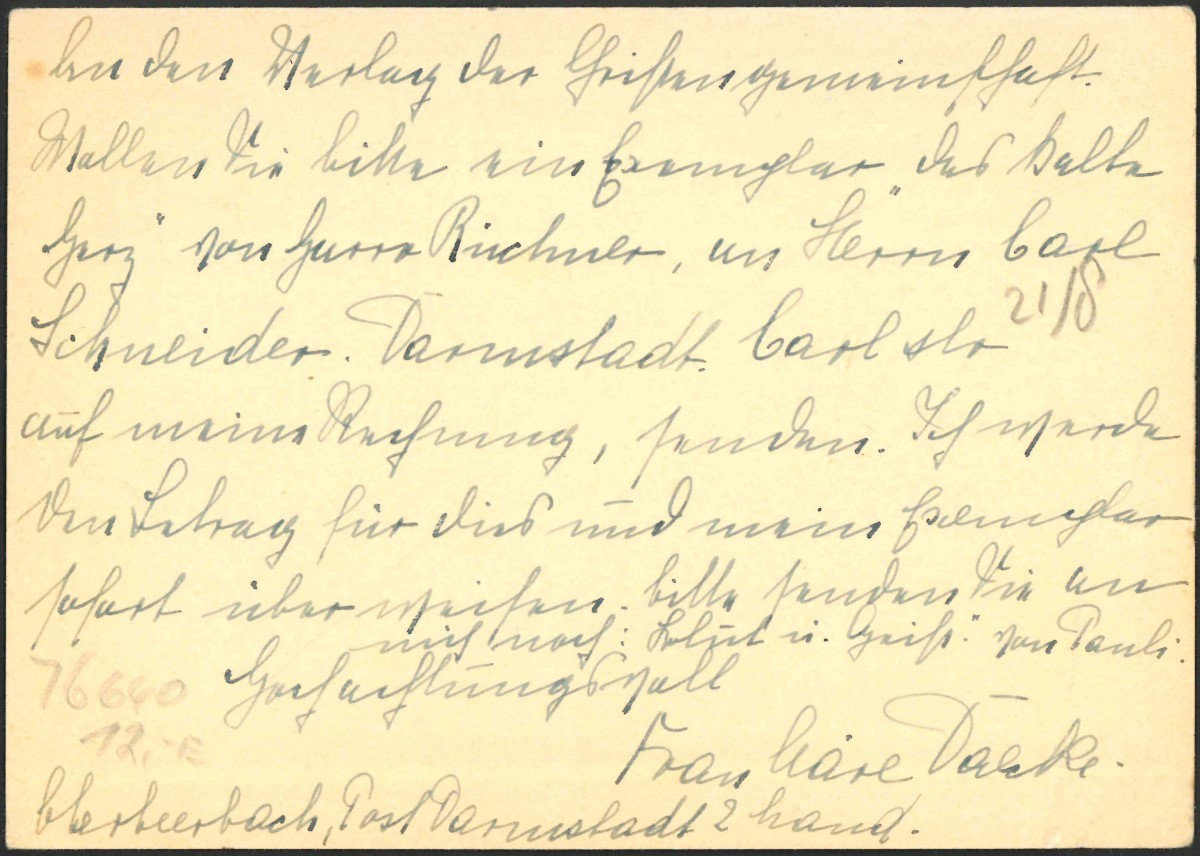 An den Verlag der Christengemeinschaft.
Wollen Sie bitte ein Exemplar "das kalte
Herz" von Rüchner, an Herrn Carl
Schneider. Darmstadt. Carlstr
21/8
auf meine Rechnung, senden. Ich werde
den Betrag für dies und mein Exemplar
sofort überweisen. bitte senden Sie an
mich noch: Blut u. Geist" von Pauli.
Hochachtungsvoll
76640
12,-
Frau Daecke.
Oberbeerbach, Post Darmstadt 2 Land.